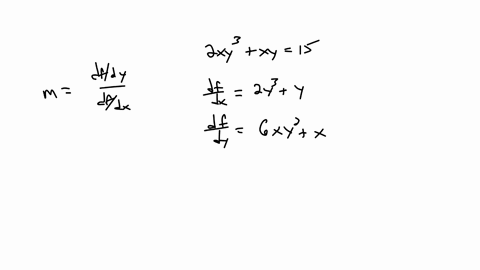 2xy³ + xy = 15
m = (df/dy)/(df/dx)
df/dx = 2y³ + y
df/dy = 6xy² + x